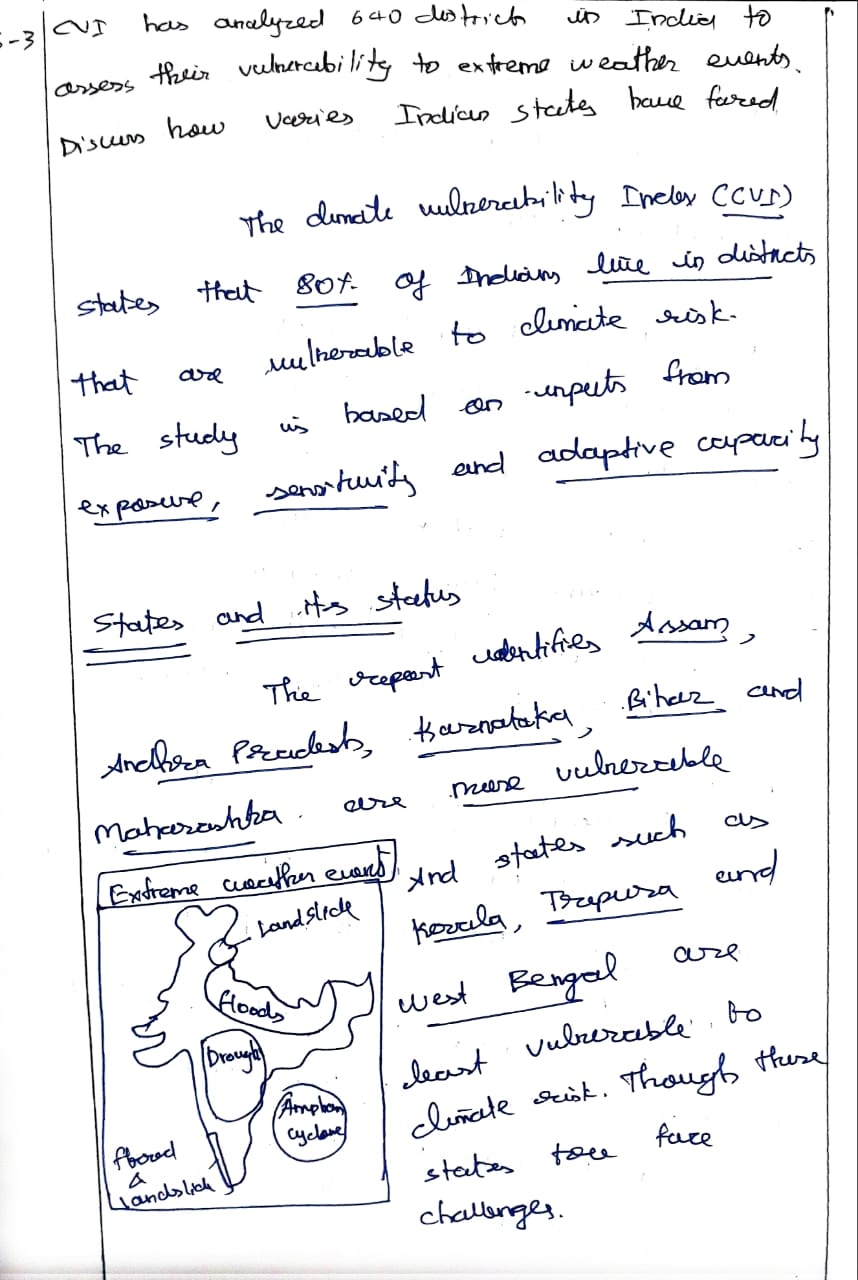 -3
CVI has analyzed 640 district in India to
assess their vulnerability to extreme weather events.
Discuss how varies Indian states have fared
The climate vulnerability Index (CVI)
states that 80% of Indians live in districts
that are vulnerable to climate risk.
The study is based on inputs from
exposure, sensitivity and adaptive capacity
States and its status
The report identifies Assam,
Andhra Pradesh, Karnataka, Bihar and
Maharashtra. are more vulnerable
And states such as
Kerala, Tripura and
West Bengal are
least vulnerable to
climate risk. Though these
states too face
challenges.
Extreme weather event
Landslide
floods
Drought
Amphan
cyclone
flood
&
Landslide